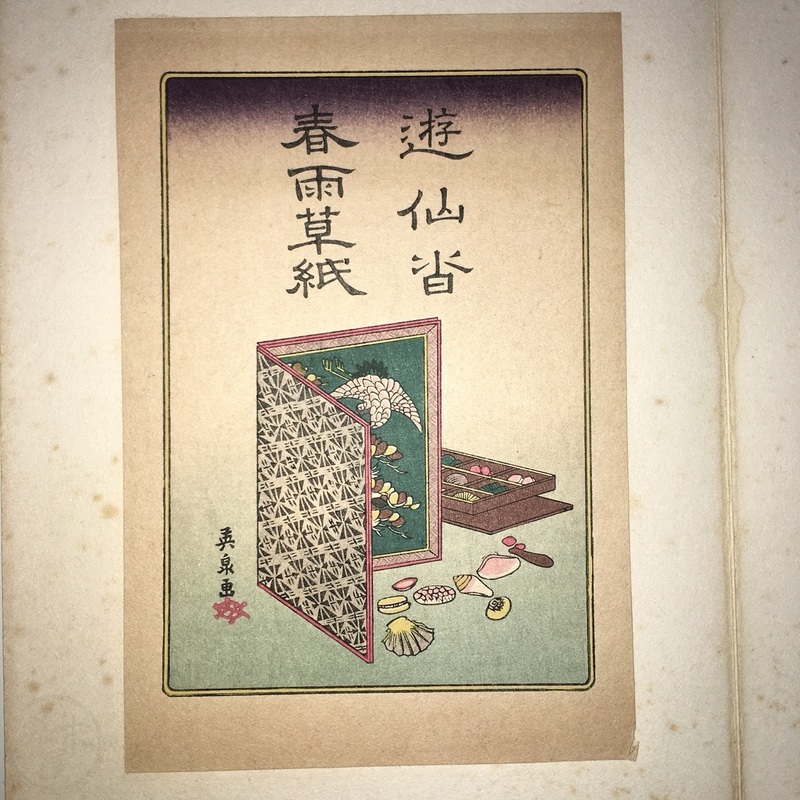 遊仙沓
春雨草紙
英泉画